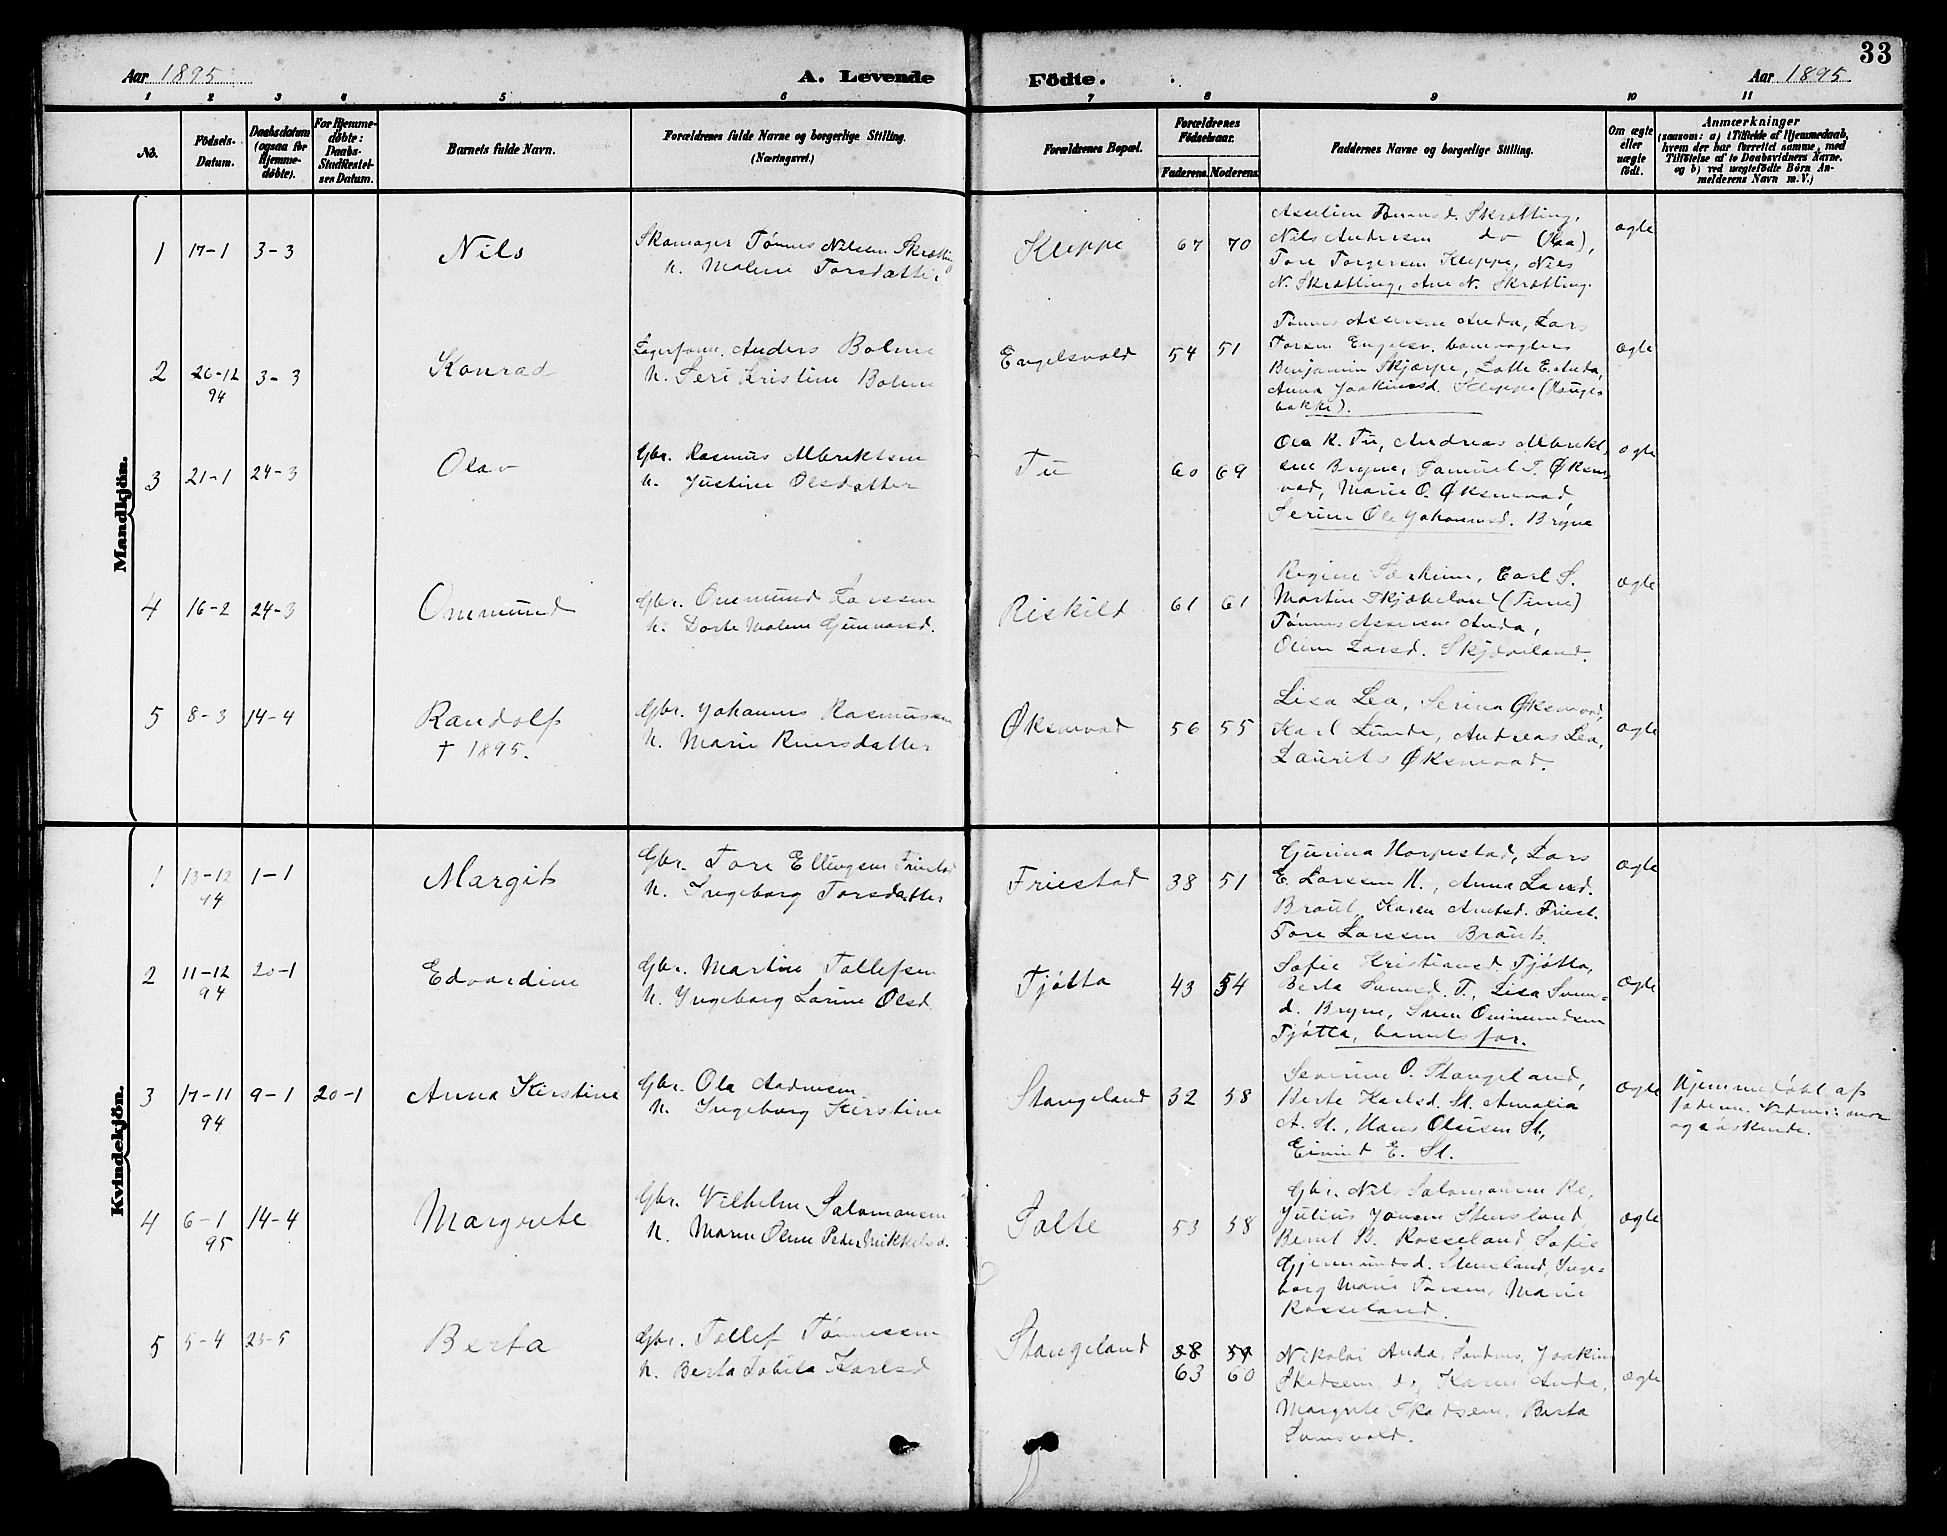 33
Aar 1895
A. Levende Födte.
Aar 1895.
1 2 3 4 5 6 7 8 9 10 11
No.
Födsels-
Datum.
Daabsdatum
(ogsaa for
Hjemme-
døbte).
For Hjemme-
døbte:
Daabs-
Stadfæstel-
ses Datum.
Barnets fulde Navn.
Forældrenes fulde Navne og borgerlige Stilling.
(Næringsvei.)
Forældrenes Bopæl.
Forældrenes
Födselsaar.
Faderens. Moderens.
Faddernes Navne og borgerlige Stilling.
Om ægte
eller
uægte
født.
Anmærkninger
(saasom: a) i Tilfælde af Hjemmedaab,
hvem der har forrettet samme, med
Tilföielse af to Daabsvidners Navne,
og b) ved uægtefödte Börn An-
melderens Navn m. V.)
Mandkjön.
1 17-1 3-3 Nils
Skomager Tønnes Nilsen Skrætting
h. Malene Torsdatter
Kleppe 67 70
Nils Andersen do
Tore Torgersen Kleppe, Nils
N. Skrætting, Ane N. Skrætting.
ægte
2 26-12 94 3-3 Konrad
Anders Bolme
h. Seri Kristine Bolme
Engelsvold 54 51
Tønnes Assersen Anda, Lars
Torsen Engelsv. banevogters
Benjamin Skjærpe, Lotte E. Anda,
Anna Joakimsd. Kleppe (Hauges
bakke).
ægte
3 21-1 24-3 Olav
Gbr. Rasmus Albriktsen
h. Justine Olsdatter
Tu 60 69
Ola R. Tu, Andreas Albrikt-
sen Bryne, Samuel T. Øksne-
vad, Marie O. Øksnevad,
Serine Ole Johannesd. Bryne
ægte
4 16-2 24-3 Ommund
Gbr. Ommund Larssen
h. Dorte Malene Gunnarsd.
Riskild 61 61
Martin Skjæveland (Time)
Tønnes Assersen Anda,
Oline Larsd. Skjæveland.
ægte
5 8-3 14-4 Randolf
† 1895.
Gbr. Johannes Rasmussen
h. Marie Reiersdatter
Øksnevad 56 55
Lisa Lea, Serina Øksnevad,
Karl Lunde, Andreas Lea,
Laurits Øksnevad.
ægte
Kvindekjön.
1 13-12 94 1-1 Margit
Gbr. Tore Ellingsen Friestad
h. Ingeborg Torsdatter
Friestad 38 51
Gurina Horpestad, Lars
E. Larssen H., Anna Larsd.
Braut, Karen Anetsd. Friest.
Tore Larssen Braut.
ægte
2 11-12 94 20-1 Edvardine
Gbr. Martin Tollefsen
h. Ingeborg Larine Olsd.
Tjøtta 43 54
Sofie Kristiansd. Tjøtta,
Berta Svensd. T., Lisa Sven-
d. Bryne, Sven Ommundsen
Tjøtta, barnets far.
ægte
3 17-11 94 9-1 20-1 Anna Kirstine
Gbr. Ola Aadnesen
h. Ingeborg Kirstine
Stangeland 32 58
Severine O. Stangeland,
Berte Karlsd. St. Amalia
A. St., Hans Olsisen St.,
Eivind E. St.
ægte
Hjemmedøbt af
faderen. Vidner: mor
og søskende.
4 6-1 95 14-4 Margrete
Gbr. Vilhelm Salomonsen
h. Maren Oline Peder Mikkelsd.
Solte 53 58
Gbr. Nils Salomonsen Re,
Julius Jonsen Stensland
Bernt B. Rosseland Sofie
Gjermundsd. Stensland, Inge-
borg Marie Torsen, Marie
Rosseland.
ægte
5 5-4 25-5 Berta
Gbr. Tollef Tønnessen
h. Berta Tobita Karlsd
Stangeland 38 54
63 60
Nikolai Anda, Joakim
Skadsem, do, Karen Anda,
Margrete Skadsem, Berta
ægte